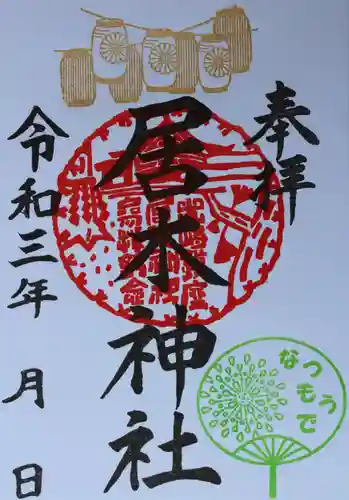 奉拝
居木神社
令和三年 月 日
なつもうで